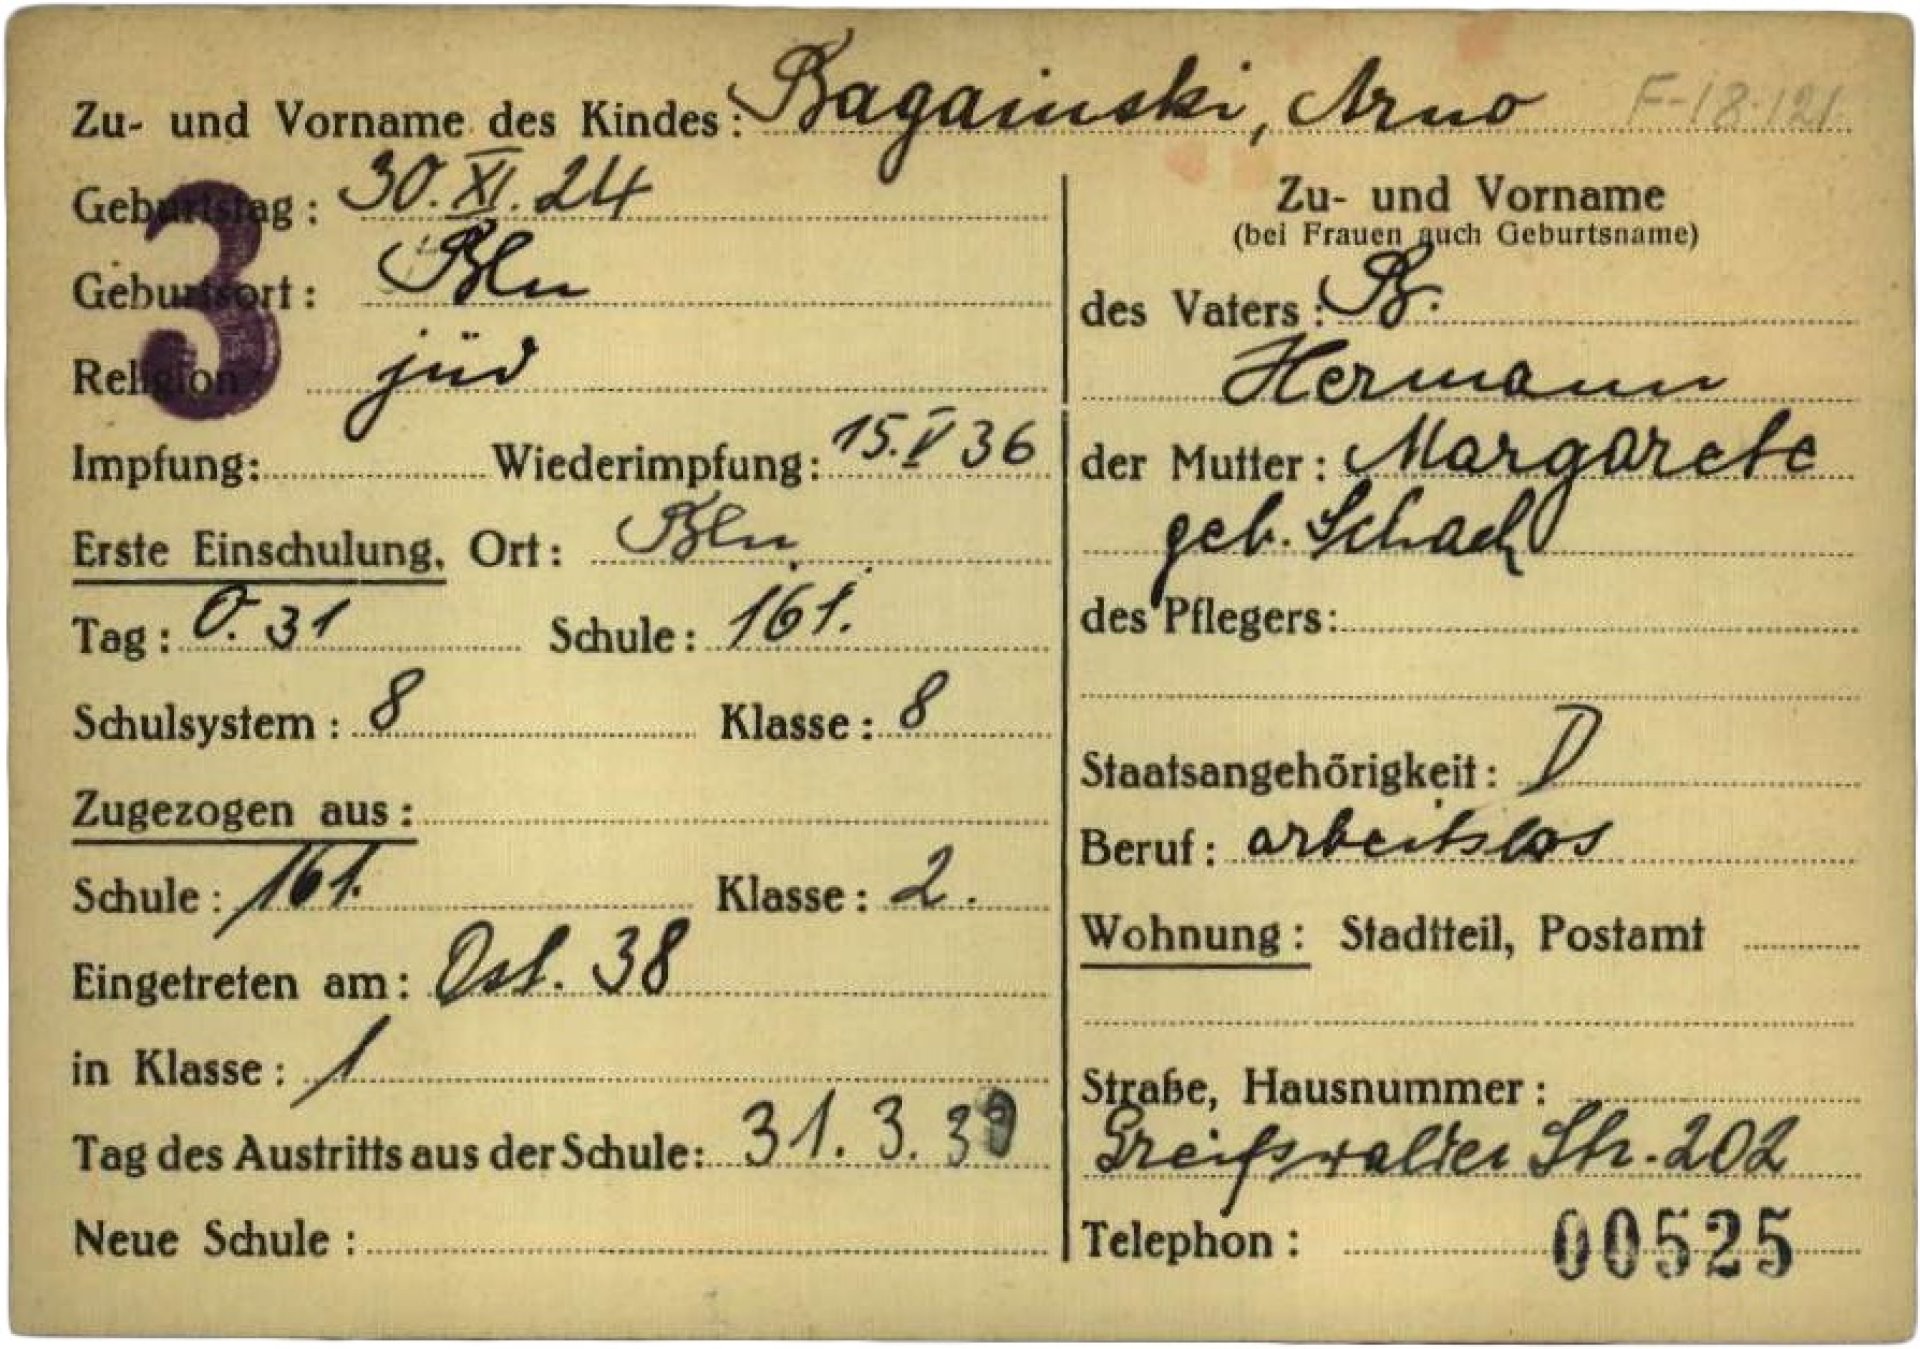 Zu- und Vorname des Kindes: Bagainski, Arno F-18-121
Geburtstag: 30. XI. 24
Geburtsort: Bln
Religion: jüd
3
Impfung: Wiederimpfung: 15. V 36
Erste Einschulung, Ort: Bln,
Tag: O. 31 Schule: 161.
Schulsystem: 8 Klasse: 8
Zugezogen aus:
Schule: 161. Klasse: 2.
Eingetreten am: Ost. 38
in Klasse: 1
Tag des Austritts aus der Schule: 31. 3. 39
Neue Schule:
Zu- und Vorname
(bei Frauen auch Geburtsname)
des Vaters: B.
Hermann
der Mutter: Margarete
geb. Schach
des Pflegers:
Staatsangehörigkeit: D
Beruf: arbeitslos
Wohnung: Stadtteil, Postamt
Straße, Hausnummer:
Greifswalder Str. 202
Telephon: 00525